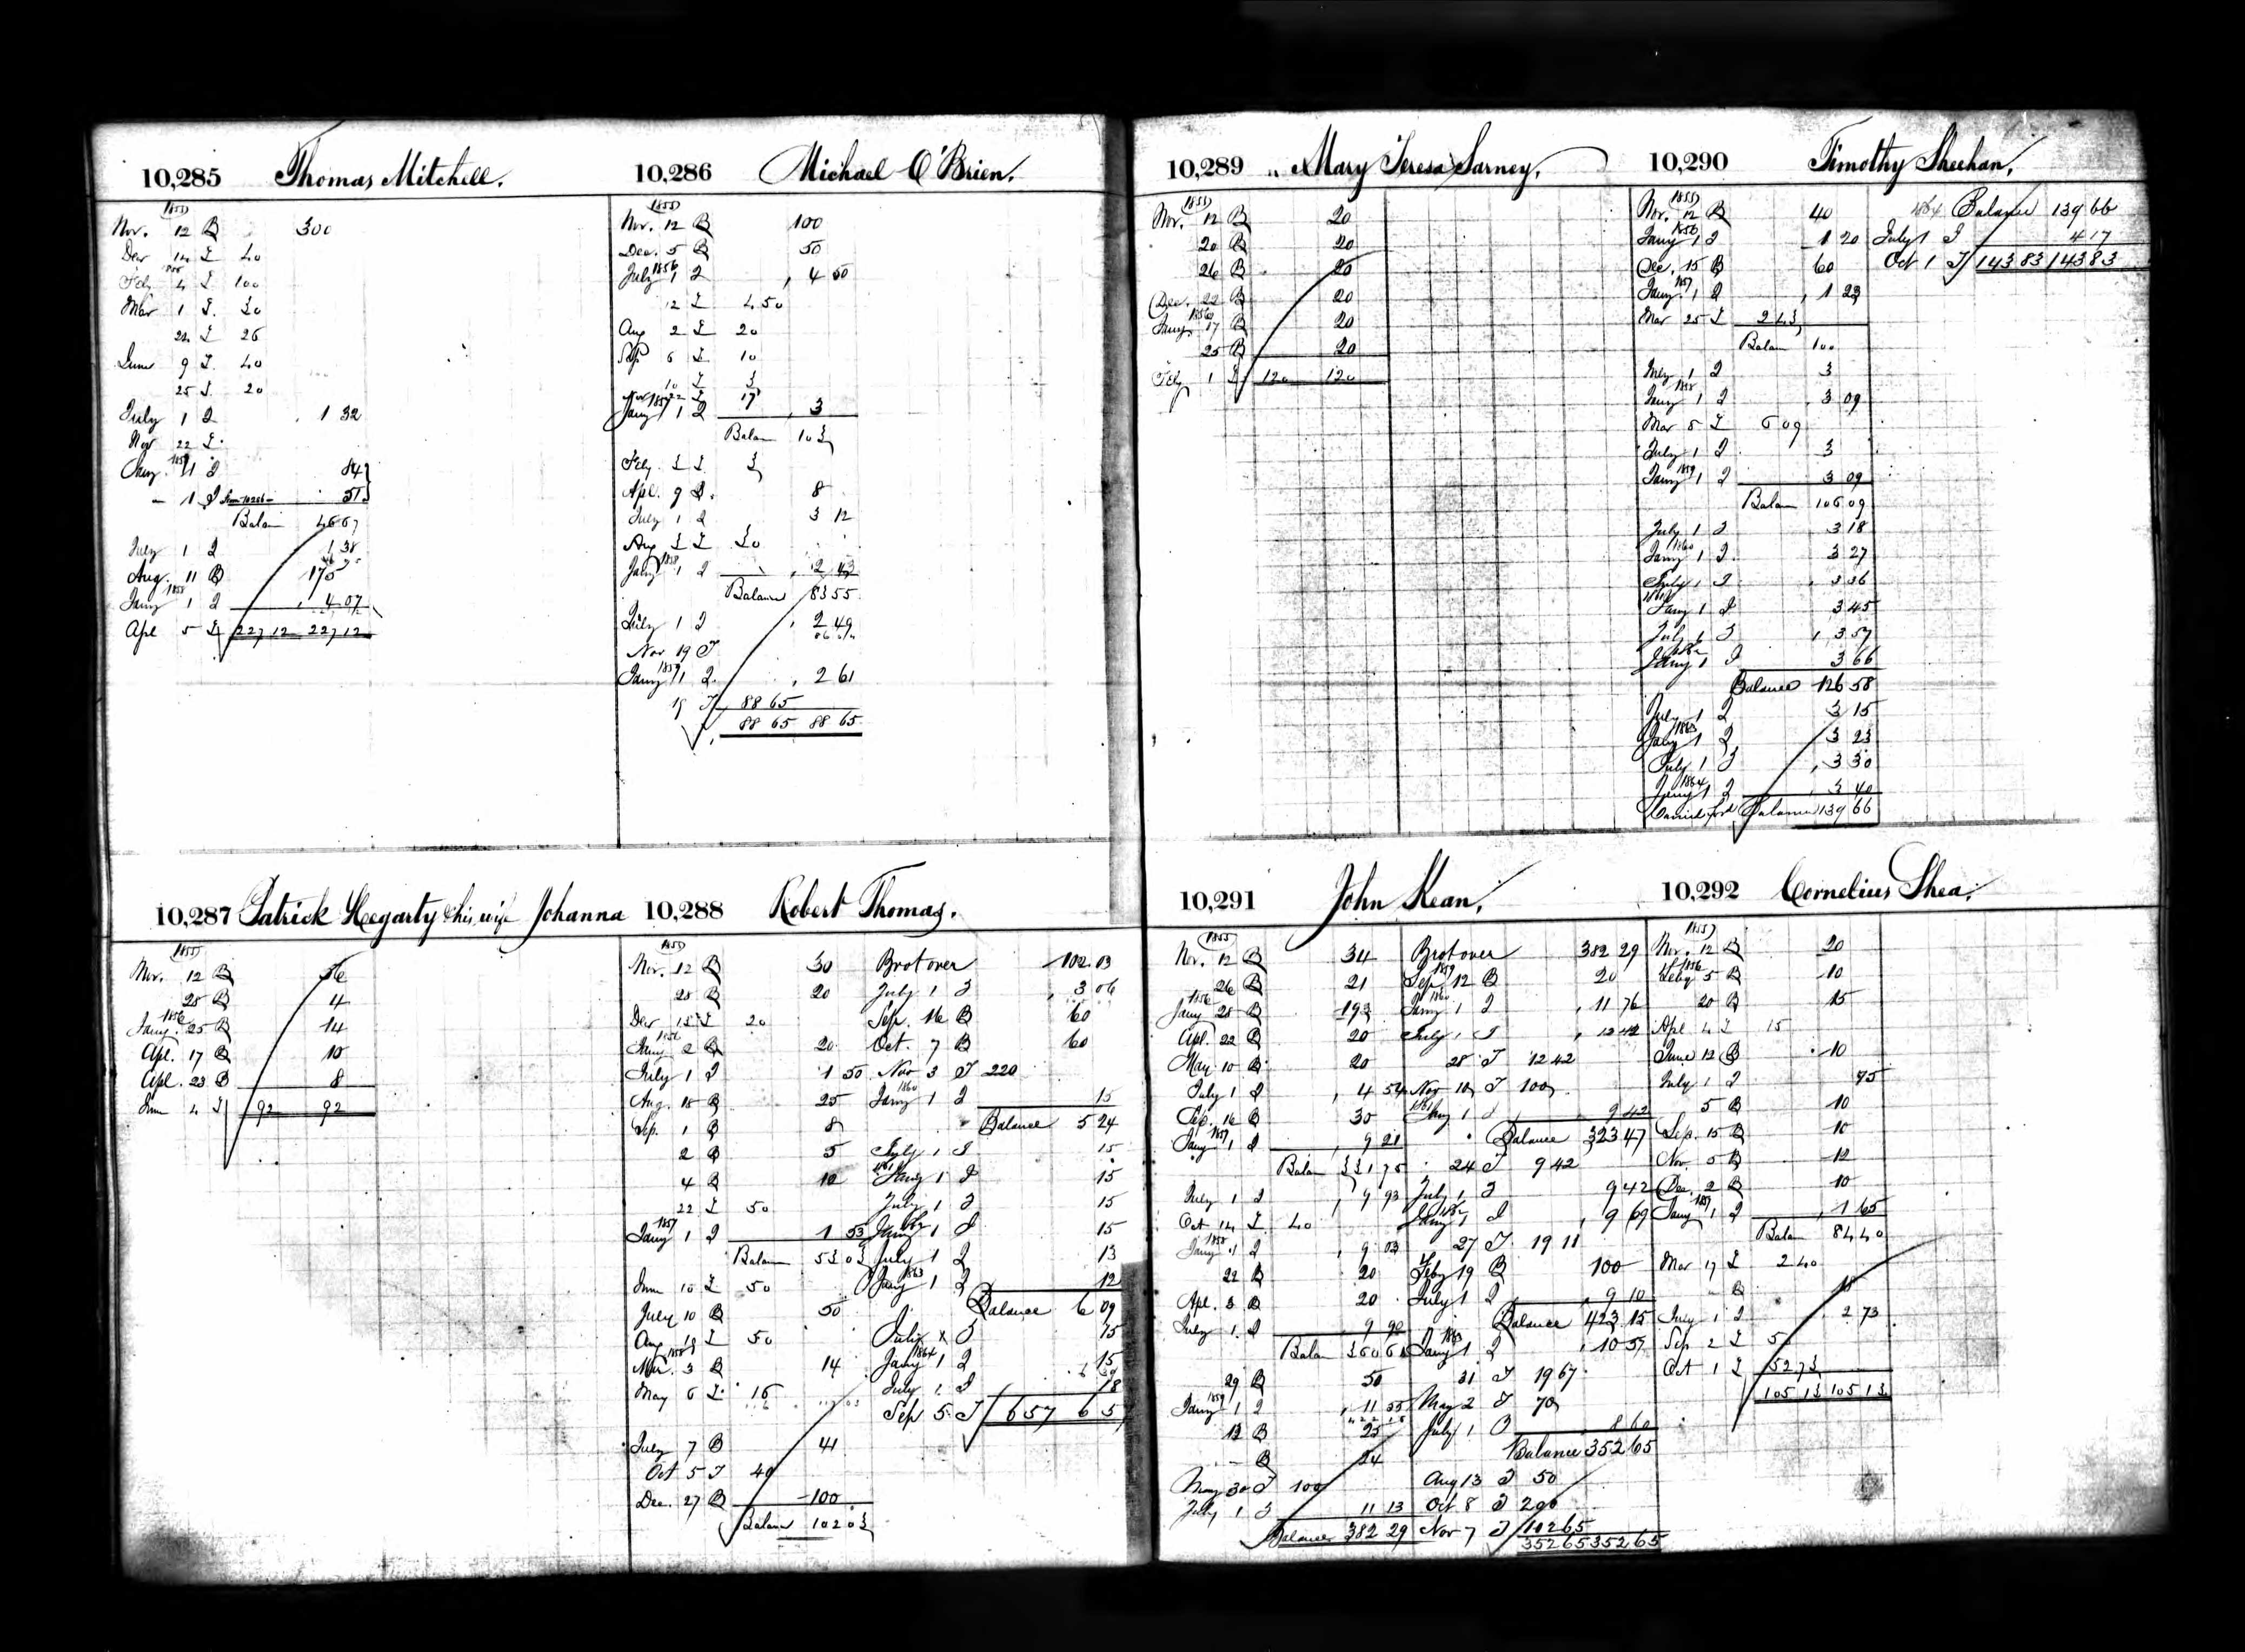 10,285 Thomas Mitchell.
1855
Nov. 12 B 300
Dec 14 £ 40
Feb 4 £ 100
Mar 1 £ 30
22 £ 26
June 9 £ 40
25 £ 20
July 1 I 1 32
Nov 22 £
Jany 1 I 84
1 I 51
Balan 46 67
July 1 I 1 38
Aug. 11 B 175
1858
Jany 1 I 4 07
Apl 5 £ 227 12 227 12
10,286 Michael O'Brien.
1855
Nov. 12 B 100
Dec. 5 B 50
1856
July 1 I 4 50
12 £ 4 50
Aug 2 £ 20
Sep 6 £ 10
10 £ 3
22 £ 17
1857
Jany 1 I 3
Balan 103
Feby. 3 £ 3
Apl. 9 B 8
July 1 I 3 12
Aug 3 £ 30
1858
Jany 1 I 2 43
Balance 83 55
July 1 I 2 49
Nov 19 I
1859
Jany 1 I 2 61
19 I 88 65
88 65 88 65
10,287 Patrick Hegarty & his wife Johanna
1855
Nov. 12 B 56
28 B 4
1856
Jany. 25 B 14
Apl. 17 B 10
Apl. 23 B 8
June 4 £ 92 92
10,288 Robert Thomas.
1855
Nov. 12 B 30
28 B 20
Dec 18 £ 20
1856
Jany 2 B 20
July 1 I 1 50
Aug. 18 B 25
Sep. 1 B 8
2 B 5
4 B 12
22 £ 50
1857
Jany 1 I 1 53
Balan 53 03
June 10 £ 50
July 10 B 50
Aug 19 £ 50
1858
Mar. 3 B 14
May 6 £ 16
July 7 B 41
Oct 5 I 40
Dec. 27 B 100
Balan 102 03
Brot over 102.03
July 1 I 3 06
Sep. 16 B 60
Oct. 7 B 60
Nov 3 I 220
1860
Jany 1 I 15
Balance 5 24
July 1 I 15
1861
Jany 1 I 15
July 1 I 15
Jany 1 I 15
July 1 I 13
1863
Jany 1 I 12
Balance 6 09
July 1 I 15
1864
Jany 1 I 15
July 1 I 18
Sep 5 I 6 57 6 57
10,289 Mary Teresa Sarney.
1855
Nov. 12 B 20
20 B 20
26 B 20
Dec. 22 B 20
1856
Jany. 17 B 20
25 B 20
Feby 1 £ 120 120
10,290 Timothy Sheehan.
1855
Nov. 12 B 40
1856
Jany 1 I 1 20
Dec. 15 B 60
1857
Jany. 1 I 1 23
Mar 25 £ 2 43
Balan 100
July 1 I 3
1858
Jany 1 I 3 09
Mar 5 £ 6 09
July 1 I 3
1859
Jany 1 I 3 09
Balan 106 09
July 1 I 3 18
1860
Jany 1 I 3 27
July 1 I 3 36
1861
Jany 1 I 3 45
July 1 I 3 57
1862
Jany 1 I 3 66
Balance 126 58
July 1 I 3 15
1863
Jany 1 I 3 23
July 1 I 3 30
1864
Jany 1 I 3 40
Carried ford Balance 139 66
1864 Balance 139 66
July 1 I 4 17
Oct 1 I 143 83 143 83
10,291 John Kean.
1855
Nov. 12 B 34
26 B 21
1856
Jany 28 B 193
Apl. 22 B 20
May 10 B 20
July 1 I 4 54
Sep. 16 B 30
1857
Jany 1 I 9 21
Balan 331 75
July 1 I 9 93
Oct 14 £ 40
1858
Jany 1 I 9 03
22 B 20
Apl. 3 B 20
July 1 I 9 90
Balan 360 61
29 B 50
1859
Jany 1 I 11 55
12 B 25
B 24
May 30 I 100
July 1 I 11 13
Balance 382 29
Brot over 382 29
1859
Sep 12 B 20
1860
Jany 1 I 11 76
July 1 I 12 42
28 I 12 42
Nov 10 I 100
1861
Jany 1 I 9 42
Balance 323 47
24 I 9 42
July 1 I 9 42
1862
Jany 1 I 9 69
27 I 19 11
Feby 19 B 100
July 1 I 9 10
Balance 423 15
1863
Jany 1 I 10 57
31 I 19 67
May 2 I 70
July 1 I 8 60
Balance 352 65
Aug 13 I 50
Oct 8 I 200
Nov 7 I 102 65
352 65 352 65
10,292 Cornelius Shea.
1855
Nov. 12 B 20
1856
Feby 5 B 10
20 B 15
Apl 4 £ 15
June 12 B 10
July 1 I 75
5 B 10
Sep. 15 B 10
Nov. 5 B 12
Dec. 2 B 10
1857
Jany 1 I 1 65
Balan 84 40
Mar 17 £ 2 40
B 18
July 1 I 2 73
Sep 2 £ 50
Oct 1 £ 52 73
105 13 105 13